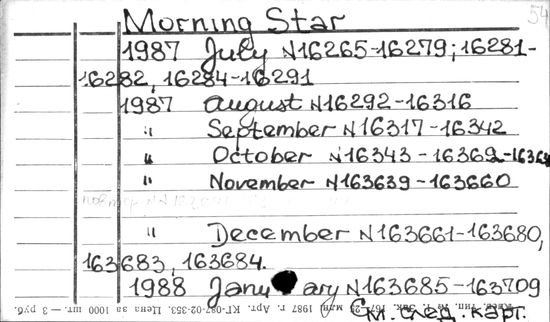 54
Morning Star
1987 July N16265-16279; 16281-
16282, 16284-16291
1987 august N16292-16316
" September N16317-16342
" October N16343-16362-
" November N163639-163660
" December N163661-163680,
163683, 163684.
1988 January N163685-163709
См. след. карт.